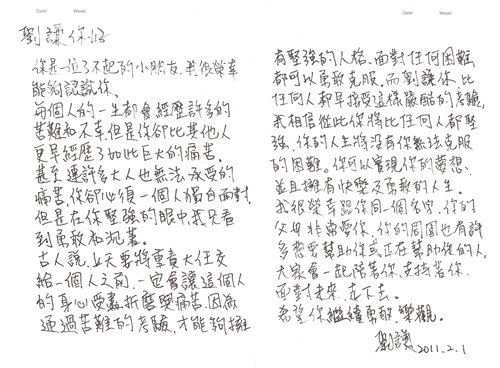 Date/ Week/
劉讓你好
你是一位了不起的小朋友,我很榮幸
能夠認識你。
每個人的一生都會經歷許多的
苦難和不幸但是你卻比其他人
更早經歷了如此巨大的痛苦。
甚至連許多大人也無法承受的
痛苦,你卻必須一個人獨自面對,
但是在你堅強的眼中我只看
到勇敢和沉著。
古人說,上天要將重責大任交
給一個人之前,一定會讓這個人
的身心受盡折磨與痛苦,因為
通過苦難的考驗,才能夠擁
Date/ Week/
有堅強的人格,面對任何困難
都可以勇敢克服。而劉讓你,比
任何人都早接受這樣嚴酷的考驗,
我相信從此你將比任何人都堅
強,你的人生將沒有你無法克服
的困難。你可以實現你的夢想,
並且擁有快樂及勇敢的人生。
我很榮幸跟你同一個名字,你的
父母非常愛你,你的周圍也有許
多想要幫助你或正在幫助你的人,
大家會一起陪著你,支持著你,
面對未來,走下去。
希望你繼續勇敢,樂觀。
劉讓
2011.2.1